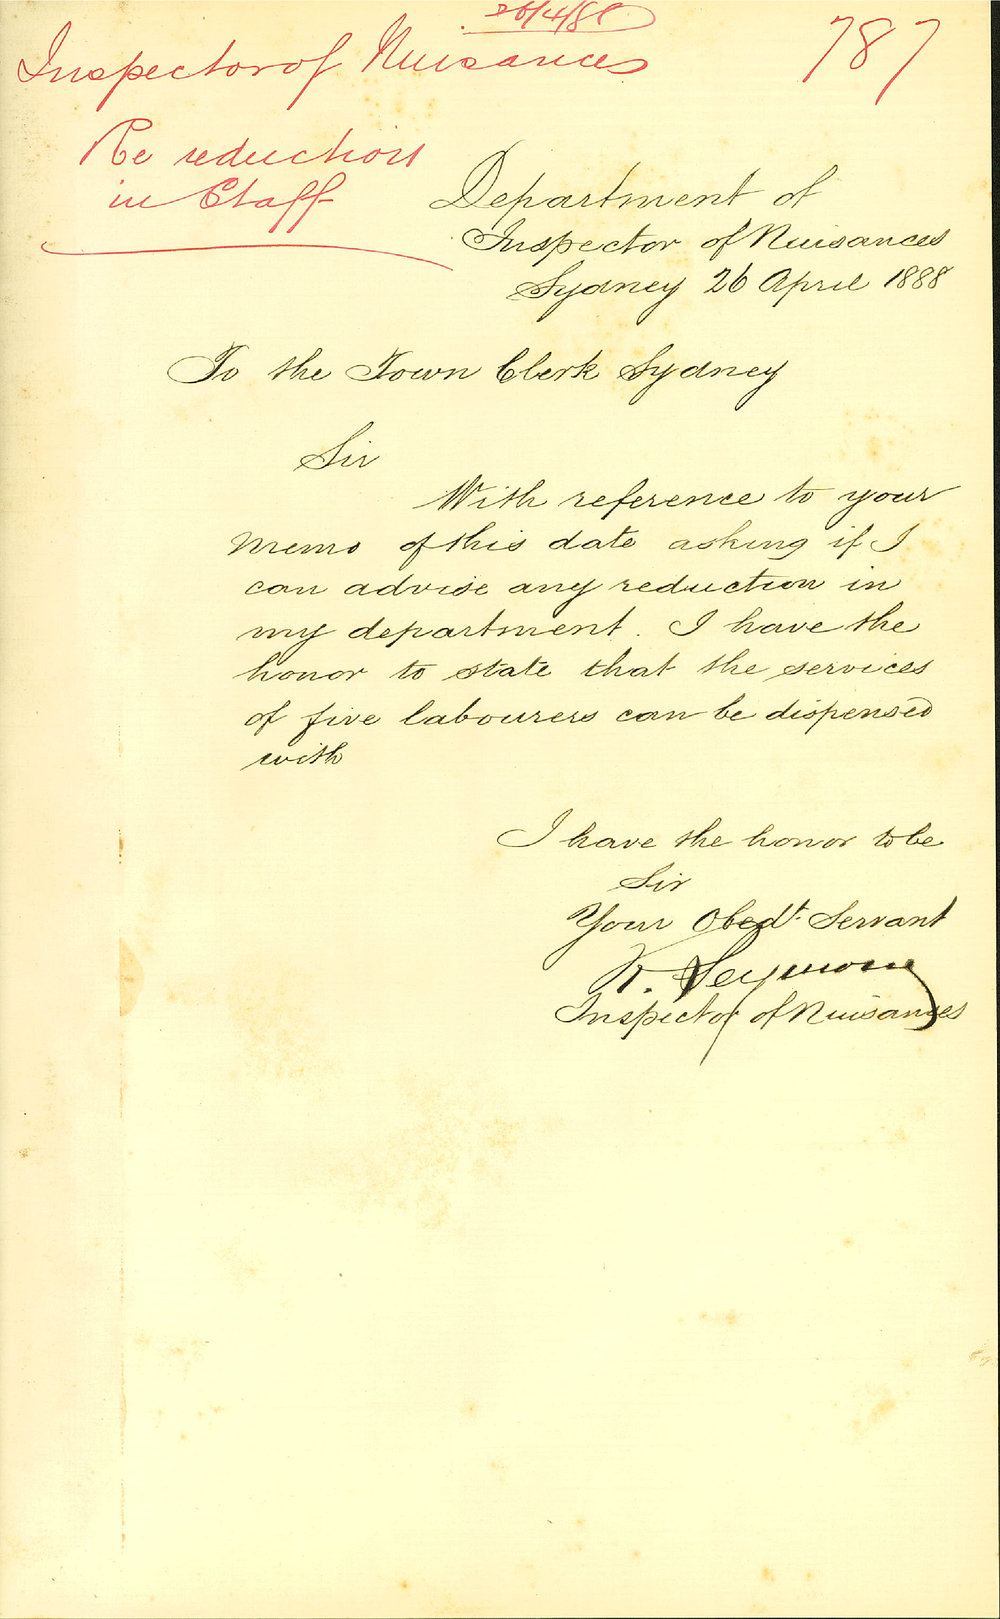 26/4/88
Inspector of Nuisances
787
Re reduction
in Staff
Department of
Inspector of Nuisances
Sydney 26 April 1888
To the Town Clerk Sydney
Sir
With reference to your
memo of this date asking if I
can advise any reduction in
my department. I have the
honor to state that the services
of five labourers can be dispensed
with
I have the honor to be
Sir
Your Obedt. Servant
R. Seymour
Inspector of Nuisances